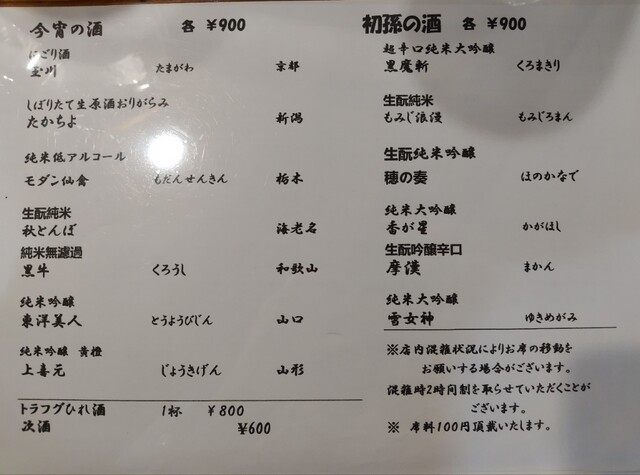 今宵の酒 各 ¥900
にごり酒
玉川 たまがわ 京都
しぼりたて生原酒おりがらみ
たかちよ 新潟
純米低アルコール
モダン仙禽 もだんせんきん 栃木
生酛純米
秋とんぼ 海老名
純米無濾過
黒牛 くろうし 和歌山
純米吟醸
東洋美人 とうようびじん 山口
純米吟醸 黄橙
上喜元 じょうきげん 山形
トラフグひれ酒 1杯 ¥800
次酒 ¥600
初孫の酒 各 ¥900
超辛口純米大吟醸
黒魔斬 くろまきり
生酛純米
もみじ浪漫 もみじろまん
生酛純米吟醸
穂の奏 ほのかなで
純米大吟醸
香が星 かがほし
生酛吟醸辛口
摩漢 まかん
純米大吟醸
雪女神 ゆきめがみ
※店内混雑状況によりお席の移動を
お願いする場合がございます。
混雑時2時間制を取らせていただくことが
ございます。
※ 席料100円頂戴いたします。